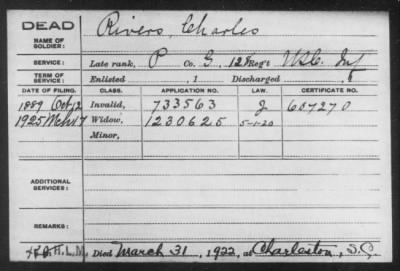 DEAD
NAME OF SOLDIER: Rivers, Charles
SERVICE: Late rank, P Co. G, 128 Reg't U.S.C. Inf
TERM OF SERVICE: Enlisted , 1 Discharged , 6
DATE OF FILING. CLASS. APPLICATION NO. LAW. CERTIFICATE NO.
1889 Oct 12 Invalid, 733563 J 607270
1925 Mch 17 Widow, 1230625 5-1-20
Minor,
ADDITIONAL SERVICES:
REMARKS:
H.L.M. Died March 31, 1922, at Charleston, S.C.